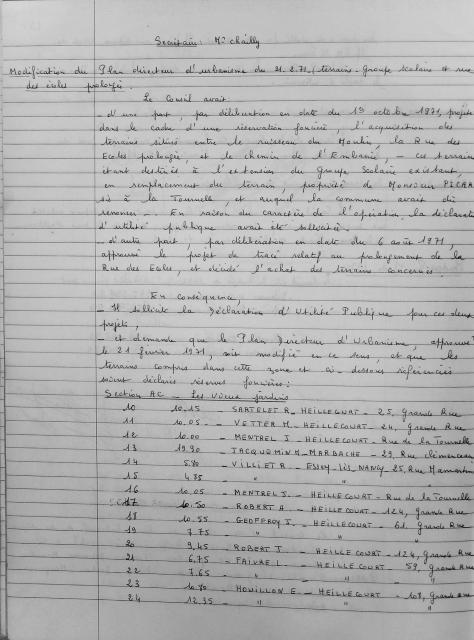 Secrétaire : Mr Chailly
Modification du Plan directeur d'urbanisme du 21.2.71 (terrains - Groupe scolaire et rue
des écoles prolongée.
Le Conseil avait
- d'une part, par délibération en date du 19 octobre 1971, projeté
dans le cadre d'une réservation foncière, l'acquisition des
terrains situés entre le ruisseau du Moulin, la Rue des
Ecoles prolongée, et le chemin de l'Embanie, - ces terrains
étant destinés à l'extension du Groupe Scolaire existant,
en remplacement du terrain, propriété de Monsieur PICAR
sis à la Tournelle, et auquel la commune avait dû
renoncer -. En raison du caractère de l'opération la déclarati
d'utilité publique avait été sollicitée.
- d'autre part, par délibération en date du 6 août 1971,
approuvé le projet de tracé relatif au prolongement de la
Rue des Ecoles, et décidé l'achat des terrains concernés.
En conséquence,
- Il sollicite la Déclaration d'Utilité Publique pour ces deux
projets,
- et demande que le Plan Directeur d'Urbanisme, approuvé
le 21 février 1971, soit modifié en ce sens, et que les
terrains compris dans cette zone et ci-dessous référenciés
soient déclarés réserves foncières :
Section AC - Les Vieux jardins
10 10.15 - SARTELET R - HEILLECOURT - 25, Grande Rue
11 10.05 - VETTER M - HEILLECOURT - 24, Grande Rue
12 10.00 - MENTREL J - HEILLECOURT - Rue de la Tournelle
13 19.90 - JACQUEMIN M - MARBACHE - 29, Rue Clémenceau
14 5.80 - VILLIET R - ESSEY-lès-NANCY - 25, Rue
15 4.85 - " "
16 10.05 - MENTREL J. - HEILLECOURT - Rue de la Tournelle
17 10.50 - ROBERT A - HEILLECOURT - 124, Grande Rue
18 10.55 - GEOFFROY J. - HEILLECOURT - 61, Grande Rue
19 7.75 - " "
20 9,45 - ROBERT J - HEILLECOURT - 124, Grande Rue
21 6,75 - FAIVRE L - HEILLECOURT - 59, Grande Rue
22 7.65 - " "
23 10.70 - HOUILLON E - HEILLECOURT - 109, Grande Rue
24 12.35 - " "